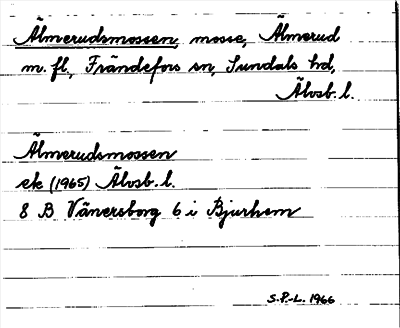 Älmerudsmossen, mosse, Älmerud
m. fl., Frändefors sn, Sundals hd,
Älvsb. l.
Älmerudsmossen
ek (1965) Älvsb. l.
8 B Vänersborg 6 i Bjurhem
S.P.-L. 1966